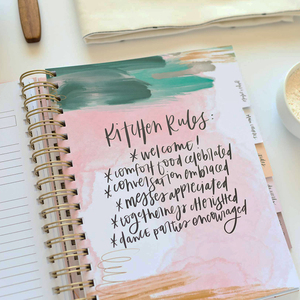 Kitchen Rules:
* welcome!
* comfort food celebrated
* conversation embraced
* messes appreciated
* togetherness cherished
* dance parties encouraged